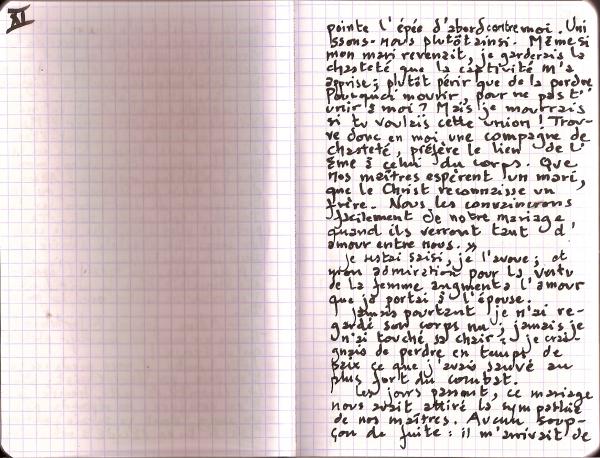 XI
pointe l'épée d'abord contre moi. Uni
ssons-nous plutôt ainsi. Même si
mon mari revenait, je garderais la
chasteté que la captivité m'a
apprise ; plutôt périr que de la perdre.
Pourquoi mourir, pour ne pas t'
unir à moi ? Mais je mourrais
si tu voulais cette union ! Trou-
ve donc en moi une compagne de
chasteté, préfère le lien de l'
âme à celui du corps. Que
nos maîtres espèrent un mari,
que le Christ reconnaisse un
frère. Nous les convaincrons
facilement de notre mariage
quand ils verront tant d'
amour entre nous. »
Je restai saisi, je l'avoue ; et
mon admiration pour la vertu
de la femme augmenta l'amour
que je portai à l'épouse.
Jamais pourtant je n'ai re-
gardé son corps nu ; jamais je
n'ai touché sa chair ; je crai-
gnais de perdre en temps de
paix ce que j'avais sauvé au
plus fort du combat.
Les jours passant, ce mariage
nous avait attiré la sympathie
de nos maîtres. Aucun soup-
çon de fuite : il m'arrivait de